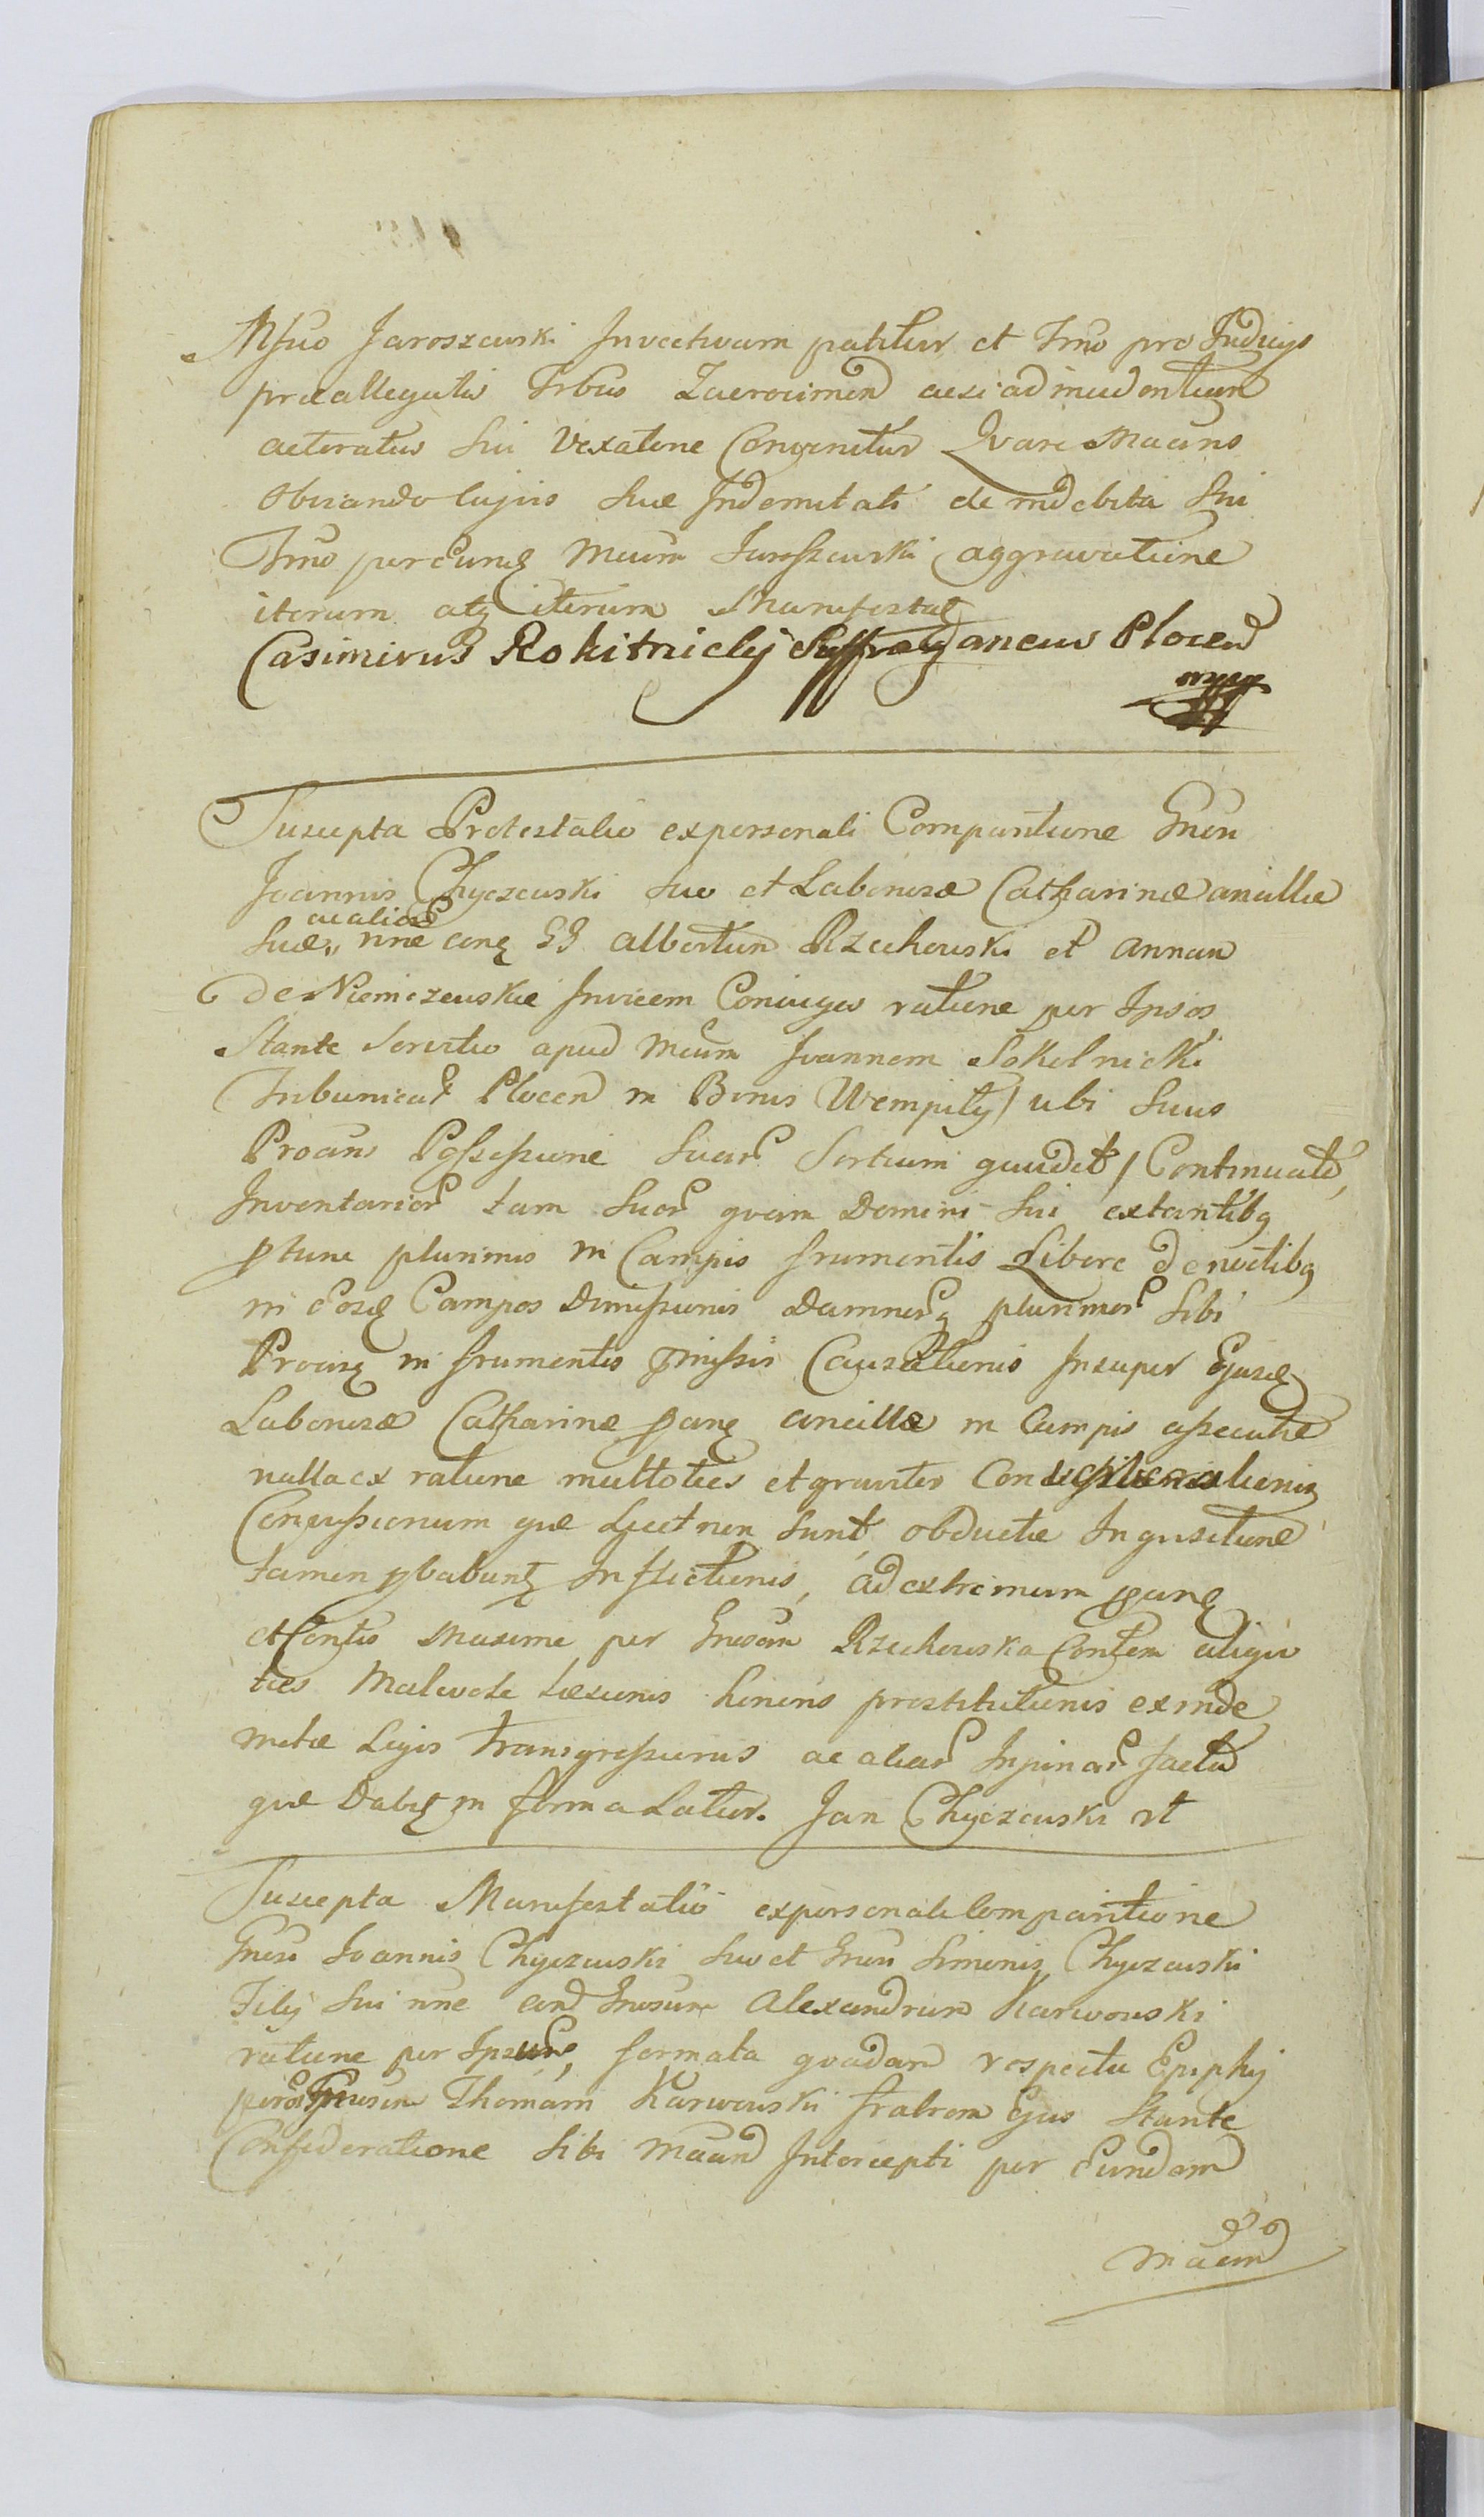 Msuo Jaroszewski Invectivam patitur et Imo pro Judicijs
præallegatis Trbus Lacrocimen acsi ad incidentium
acteratus sui vexatione Convenitur Qvare Macuns
obviando cujus suæ Indemnitati de indebita sui
Imo per eunq Mcum Jaroszewski aggravatione
iterum atq iterum Manifestat
Casimirus Rokitnicky Suffraganeus Plocen
mppp
Suscepta Protestatio ex personali Comparitione Gnen
Joannis Chyczewski suo et Laboriosæ Catharinæ ancillæ
ac aliar
suæ nne conq GG Albertum Rzechowski et Annam
de Niemczewskie Invicem Coniuges ratione per Ipsos
Stante Servitio apud Mcum Joannem Sokolnicki
Tribunicat Plocen in Bonis Wempity / ubi suus
Procans Possessione suar Sortium gaudet / Continuato,
Inventarior tam suor qvam Domini sui extantibq
ptunc plurimis in Campis frumentis Libere de noctibq
in eosq Campos Dimissionis Damnorq plurimor sibi
Procisq in frumentis pmissis Causationis Insuper Ejusq
Laboriosæ Catharinæ panq ancillæ in Campis assecutæ
nulla ex ratione multoties et graviter Con
Concussionum quæ Ljcet non sunt obductæ Inqvisitione
tamen pbabuntq Inflictionis, ad extremum panq
et Contis Maxime per Gnosam Rzechowska Contem aliqvo
ties Malevole Læsionis honoris prostitutionis exinde
metæ Legis Transgressionis ac aliar Injuriar factæ
qvæ Dabitq in forma Latior. Jan Chyczewski rt
Suscepta Manifestatio ex personali Comparitione
Gnen Joannis Chyczewski suo et Gnen Simonis Chyczewski
Filij sui nne con Gnosum Alexandrum Karwowski
ratione per Ipsum formata qvadam respectu Epiphij
per Gnosum Thomam Karwowski fratrem Ejus Stante
Confideratione sibi Macun Intercepti per Eundem
Macun